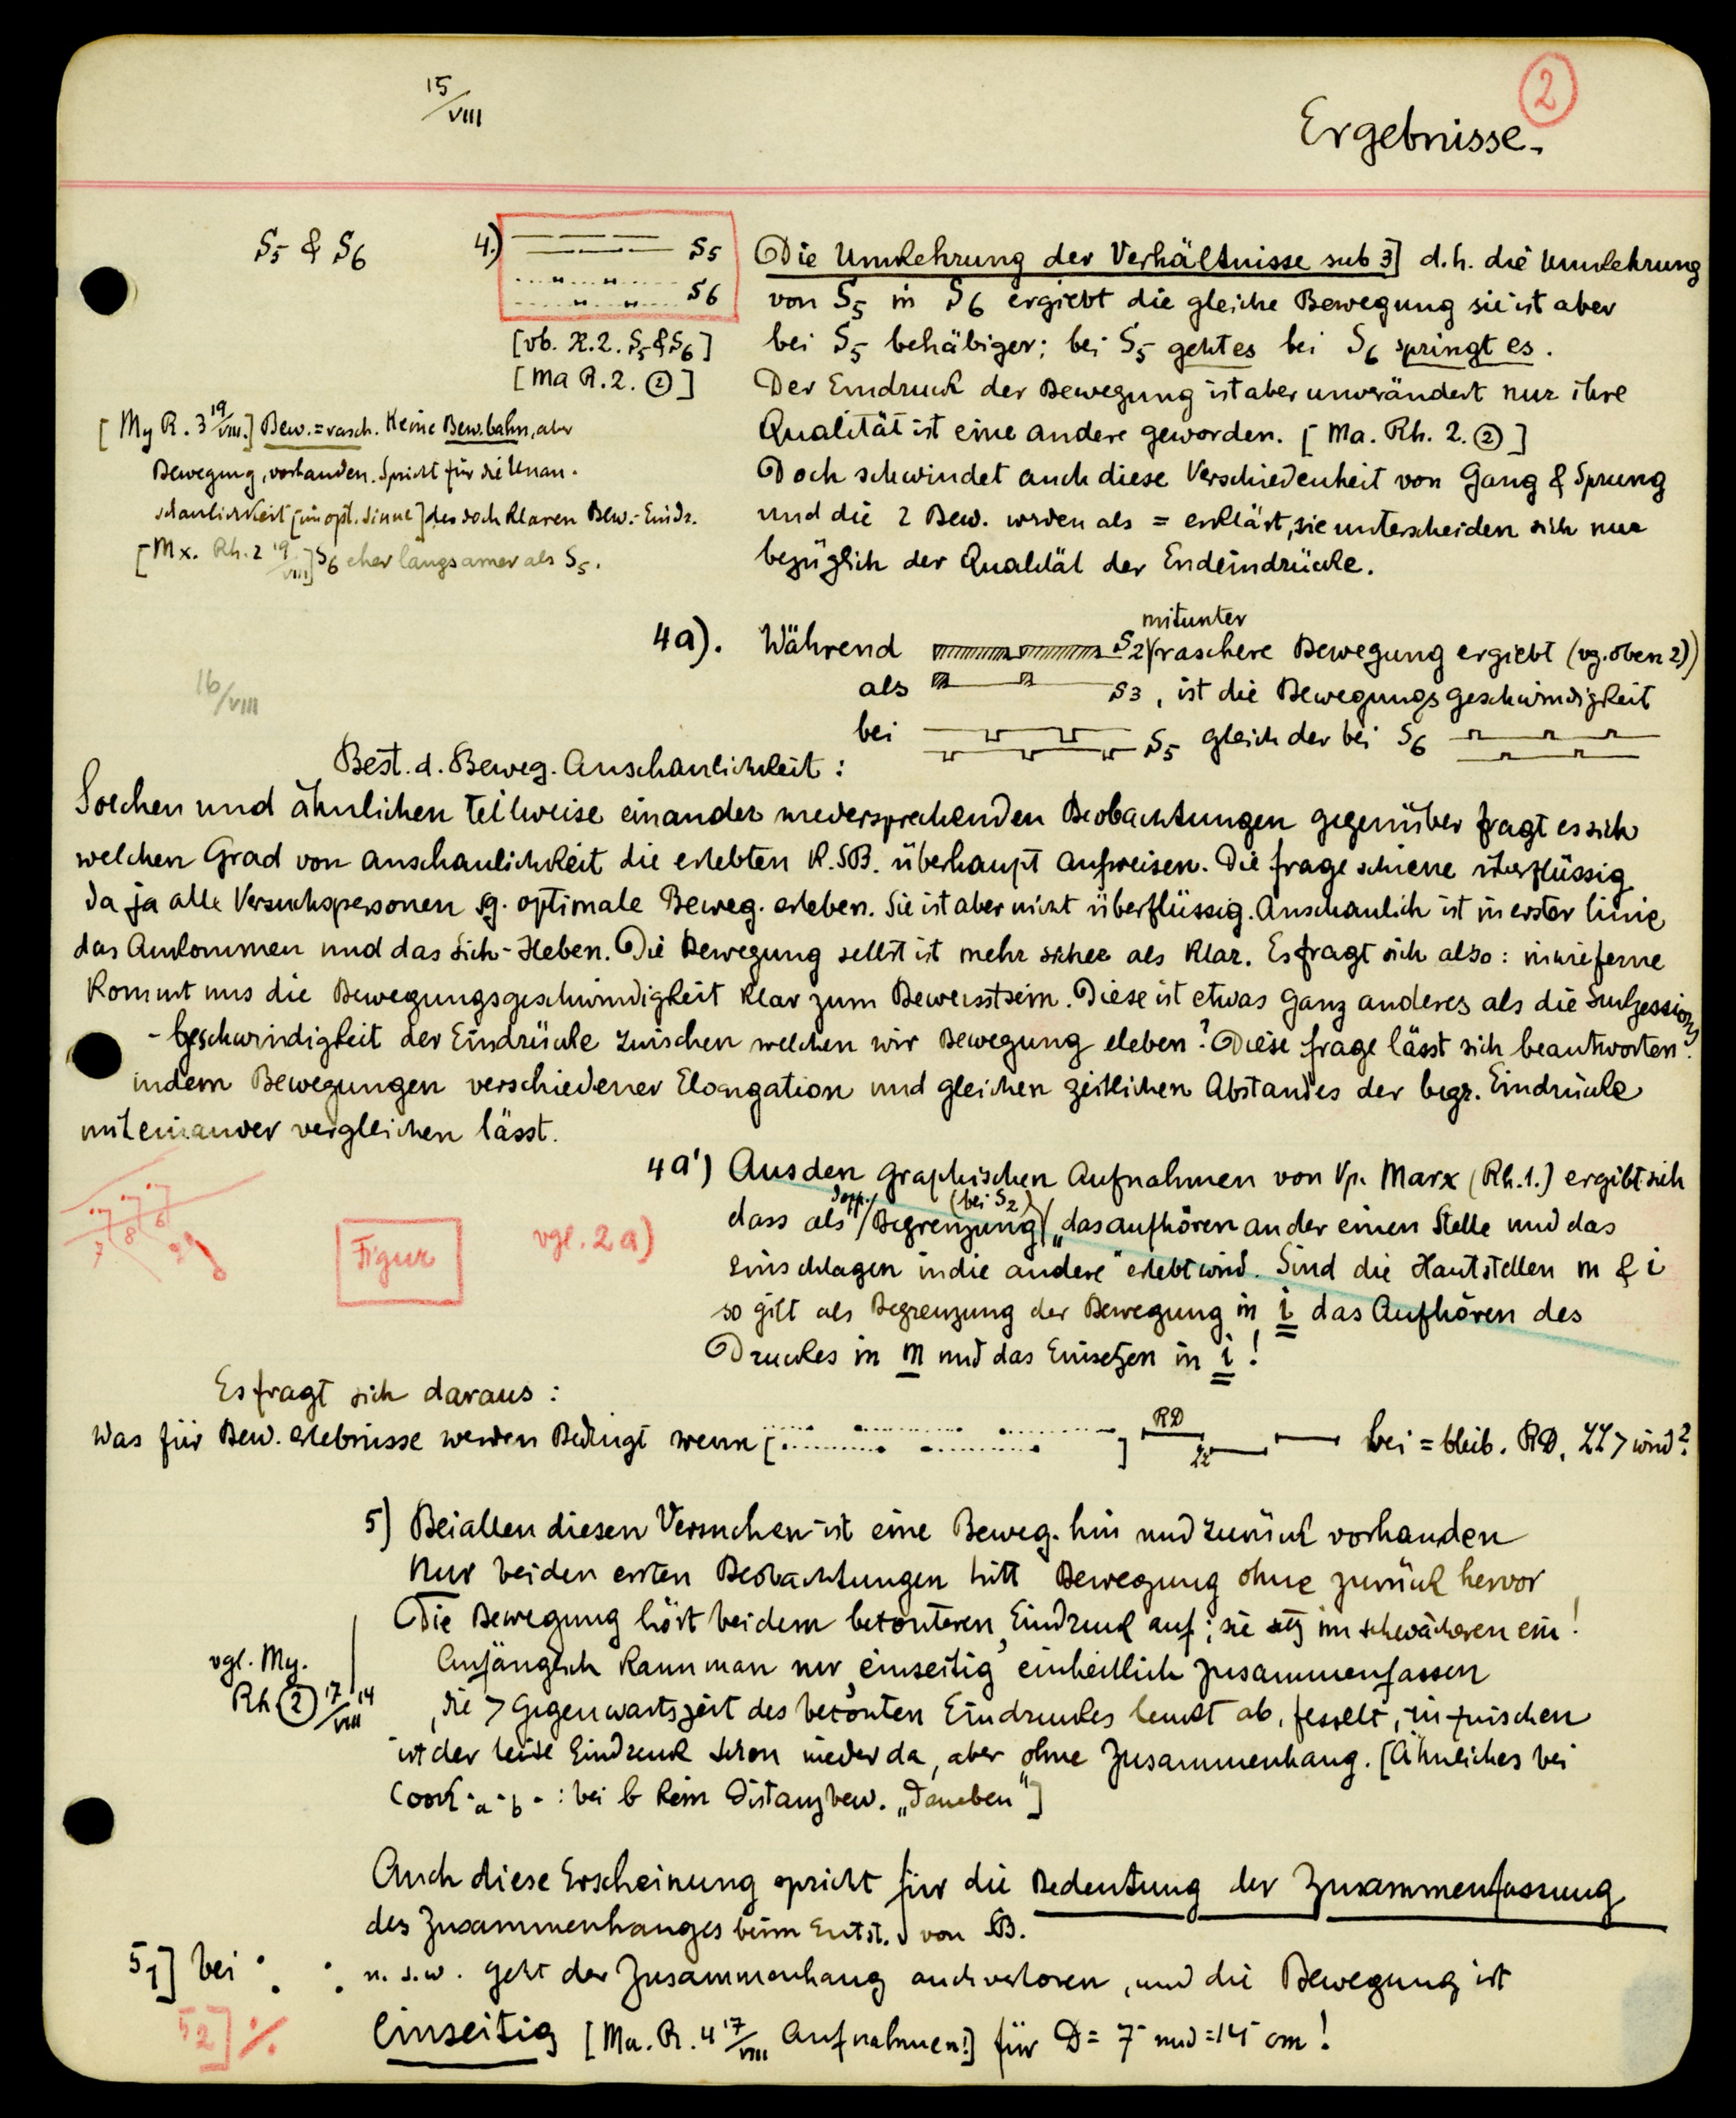 15/VIII
2
Ergebnisse.
S5 & S6
4.)
S5
S6
[vb. R.2. S5 & S6]
[Ma R. 2. ②]
Die Umkehrung der Verhältnisse sub 3] d.h. die Umkehrung
von S5 in S6 ergiebt die gleiche Bewegung sie ist aber
bei S5 behäbiger; bei S5 geht es bei S6 springt es.
Der Eindruck der Bewegung ist aber unverändert nur ihre
Qualität ist eine andere geworden. [Ma. Rh. 2. ②]
Doch schwindet auch diese Verschiedenheit von Gang & Sprung
und die 2 Bew. werden als = erklärt, sie unterscheiden sich nur
bezüglich der Qualität der Endeindrücke.
[My R. 3 19/VIII.] Bew. = rasch. Keine Bew.bahn, aber
Bewegung, vorhanden. Spricht für die Unan-
schaulichkeit [im opt. Sinne] des doch klaren Bew.-Eindr.
[Mx. Rh. 2 19/VIII] S6 eher langsamer als S5.
4a). Während S2 mitunter raschere Bewegung ergiebt (vg. oben 2))
als S3, ist die Bewegungsgeschwindigkeit
bei S5 gleich der bei S6
16/VIII
Best. d. Beweg. Anschaulichkeit:
Solchen und ähnlichen teilweise einander widersprechenden Beobachtungen gegenüber fragt es sich
welchen Grad von Anschaulichkeit die erlebten K.SB. überhaupt aufweisen. Die Frage schiene überflüssig
da ja alle Versuchspersonen sg. optimale Beweg. erleben. Sie ist aber nicht überflüssig. Anschaulich ist in erster Linie
das Ankommen und das Sich-Heben. Die Bewegung selbst ist mehr sicher als klar. Es fragt sich also: inwieferne
kommt uns die Bewegungsgeschwindigkeit klar zum Bewusstsein. Diese ist etwas ganz anderes als die Sukzessions
-geschwindigkeit der Eindrücke zwischen welchen wir Bewegung eleben? Diese Frage lässt sich beantworten
indem Bewegungen verschiedener Elongation und gleichen zeitlichen Abstandes der begr. Eindrücke
miteinander vergleichen lässt.
4a') Aus den graphischen Aufnahmen von Vp. Marx (Rh.1.) ergibt sich
dass als Begrenzung (bei S2) „das aufhören an der einen Stelle und das
Einschlagen in die andere" erlebt wird. Sind die Hautstellen m & i
so gilt als Begrenzung der Bewegung in i das Aufhören des
Druckes in m und das Einsetzen in i!
7 8 6
Figur
vgl. 2a)
Es fragt sich daraus:
Was für Bew. erlebnisse werden Bedingt wenn [ ] RD ZZ bei = bleib. RD, ZZ > wird?
5) Bei allen diesen Versuchen ist eine Beweg. hin und zurück vorhanden
Nur bei den ersten Beobachtungen tritt Bewegung ohne zurück hervor
Die Bewegung hört bei dem betonteren Eindruck auf; sie setz im schwächeren ein!
Anfänglich kann man nur einseitig einheitlich zusammenfassen
die > Gegenwartszeit des betonten Eindruckes lenkt ab, fesselt, inzwischen
ist der leise Eindruck schon wieder da, aber ohne Zusammenhang. [Ähnliches bei
Coord -a-b- : bei b kein Distanzbew. „Daneben"]
vgl. My.
Rh ② 17/VIII 14
Auch diese Erscheinung spricht für die Bedeutung der Zusammenfassung
des Zusammenhanges beim Entst. von SB.
51] bei u.s.w. geht der Zusammenhang auch verloren, und die Bewegung ist
52] %
einseitig [Ma. R. 4 17/VIII Aufnahmen!] für D = 7 und = 14 cm!